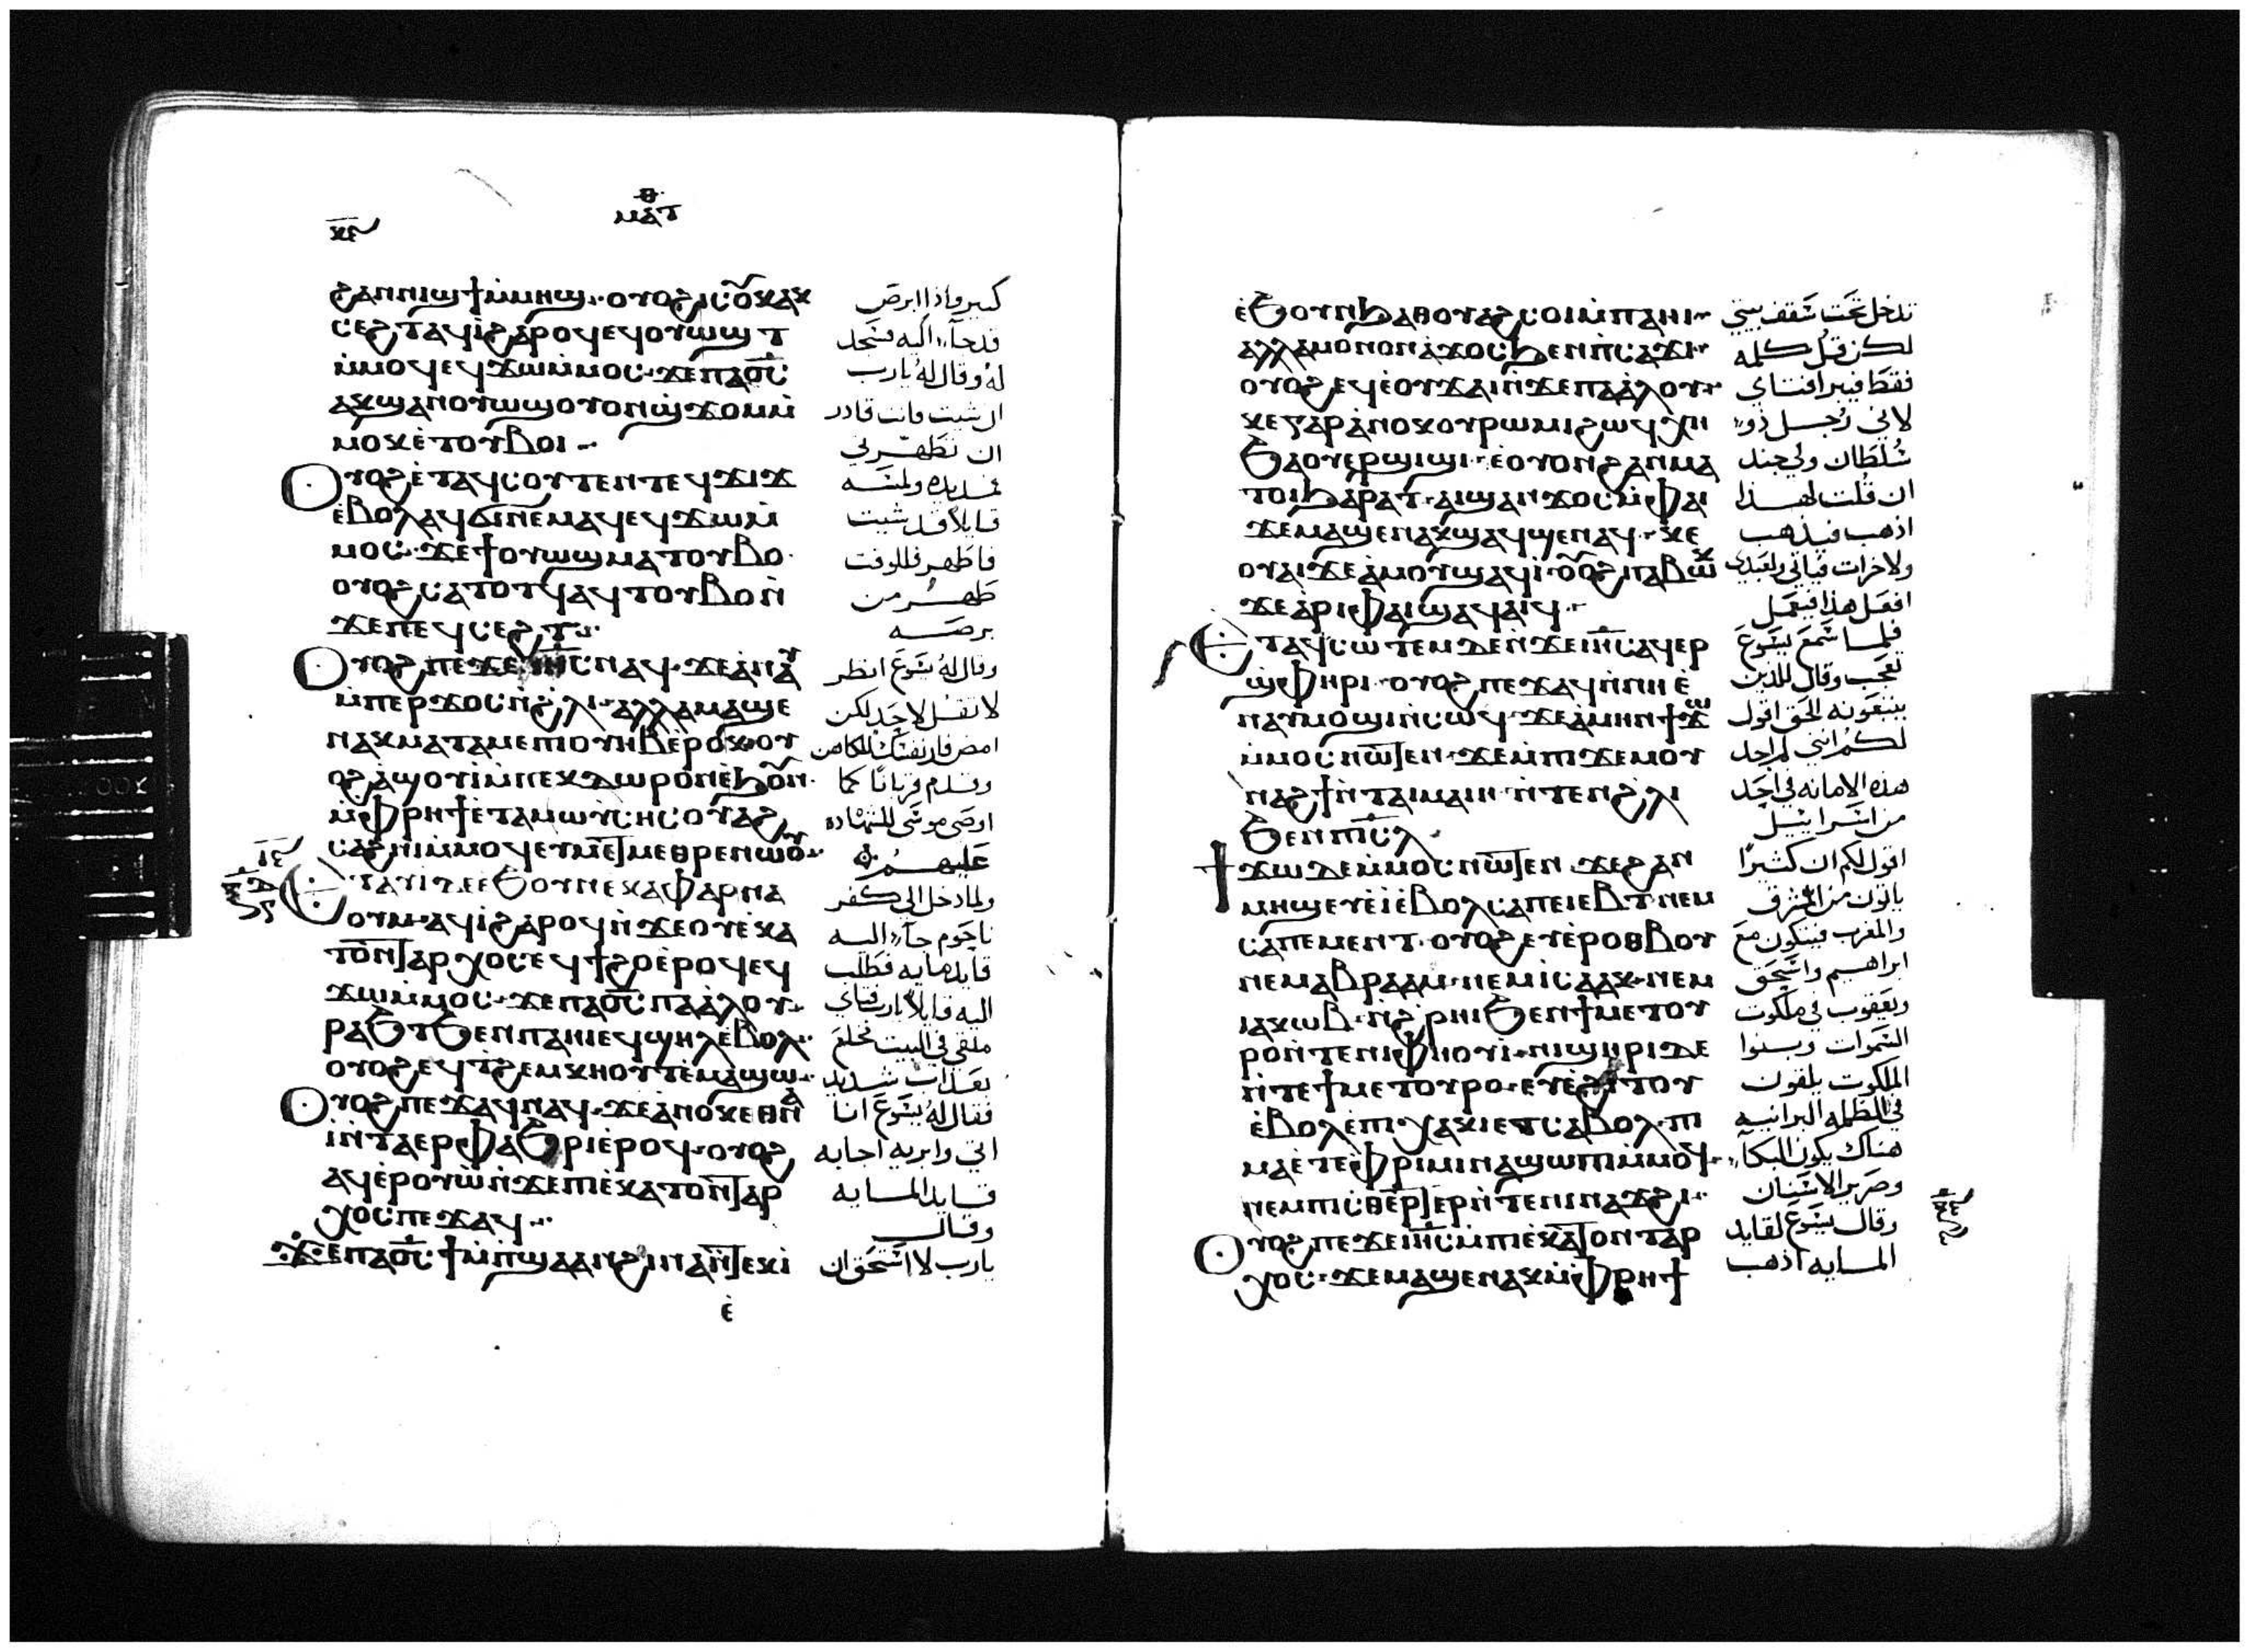 ⲙⲁⲧ
ϩⲁⲛⲛⲓϣϯ ⲙ̀ⲙⲏϣ ⲟⲩⲟϩ ⲓⲥ ⲟⲩⲕⲁⲕ
ⲥⲉϩⲧ ⲁϥⲓ̀ ϩⲁⲣⲟϥ ⲉϥⲟⲩⲱϣⲧ
ⲙ̀ⲙⲟϥ ⲉϥϫⲱ ⲙ̀ⲙⲟⲥ ϫⲉ ⲡⲁⲟ̅ⲥ̅
ⲁⲕϣⲁⲛⲟⲩⲱϣ ⲟⲩⲟⲛ ϣ̀ϫⲟⲙ ⲙ̀
ⲙⲟⲕ ⲉ̀ⲧⲟⲩⲃⲟⲓ
ⲟⲩⲟϩ ⲉ̀ⲧⲁϥⲥⲟⲩⲧⲉⲛ ⲧⲉϥϫⲓϫ
ⲉ̀ⲃⲟⲗ ⲁϥϭⲓⲛⲉⲙⲁϥ ⲉϥϫⲱ ⲙ̀
ⲙⲟⲥ ϫⲉ ϯⲟⲩⲱϣ ⲙⲁⲧⲟⲩⲃⲟ
ⲟⲩⲟϩ ⲥⲁⲧⲟⲧϥ ⲁϥⲧⲟⲩⲃⲟ ⲛ̀
ϫⲉ ⲡⲉϥⲥⲉϩⲧ
ⲟⲩⲟϩ ⲡⲉϫⲉ ⲓⲏ̅ⲥ̅ ⲛⲁϥ ϫⲉ ⲁ̀ⲛⲁⲩ
ⲙ̀ⲡⲉⲣϫⲟⲥ ⲛ̀ϩ̀ⲗⲓ ⲁⲗⲗⲁ ⲙⲁϣⲉ
ⲛⲁⲕ ⲙⲁⲧⲁⲙⲉ ⲡⲓⲟⲩⲏⲃ ⲉ̀ⲣⲟⲕ ⲟⲩ
ⲟϩ ⲁ̀ⲛⲓⲟⲩⲓ̀ ⲙ̀ⲡⲉⲕⲇⲱⲣⲟⲛ ⲉ̀ϧⲟⲩⲛ
ⲙ̀ⲫⲣⲏϯ ⲉ̀ⲧⲁ ⲙⲱⲩ̀ⲥⲏⲥ ⲟⲩⲁϩ
ⲥⲁϩⲛⲓ ⲙ̀ⲙⲟϥ ⲉⲩⲙⲉⲧⲙⲉⲑⲣⲉ ⲛⲱⲟⲩ
ⲉⲧⲁϥⲓ̀ ⲇⲉ ⲉ̀ϧⲟⲩⲛ ⲉ̀ⲕⲁⲫⲁⲣⲛⲁ
ⲟⲩⲙ ⲁϥⲓ̀ ϩⲁⲣⲟϥ ⲛ̀ϫⲉ ⲟⲩⲉ̀ⲕⲁ
ⲧⲟⲛⲧⲁⲣⲭⲟⲥ ⲉϥϯϩⲟ ⲉ̀ⲣⲟϥ ⲉϥ
ϫⲱ ⲙ̀ⲙⲟⲥ ϫⲉ ⲡⲁⲟ̅ⲥ̅ ⲡⲁⲁ̀ⲗⲟⲩ
ⲣⲁϧⲧ ϧⲉⲛ ⲡⲁⲏⲓ ⲉϥϣⲏⲗ ⲉ̀ⲃⲟⲗ
ⲟⲩⲟϩ ⲉϥⲧ̀ϩⲉⲙⲕⲏⲟⲩⲧ ⲉ̀ⲙⲁϣⲱ
ⲟⲩⲟϩ ⲡⲉϫⲁϥ ⲛⲁϥ ϫⲉ ⲁ̀ⲛⲟⲕ ⲉⲑⲛⲁ
ⲓ̀ ⲛ̀ⲧⲁⲉⲣⲫⲁϧⲣⲓ ⲉ̀ⲣⲟϥ ⲟⲩⲟϩ
ⲁϥⲉ̀ⲣⲟⲩⲱ̀ ⲛ̀ϫⲉ ⲡⲓⲉ̀ⲕⲁⲧⲟⲛⲧⲁⲣ
ⲭⲟⲥ ⲡⲉϫⲁϥ
ϫⲉ ⲡⲁⲟ̅ⲥ̅ ϯⲙ̀ⲡϣⲁ ⲁⲛ ϩⲓⲛⲁ ⲛ̀ⲧⲉⲕⲓ̀
ⲉ̀
كبير واذا ابرص
قد جآء اليه فسجد
له وقال له يارب
ان شيت فانت قادر
ان تطهرني
فمد يده ولمسه
قايلا قد شيت
فاطهر فللوقت
طهر من
برصه
وقال له يسوع انظر
لا تقل لاحد لكن
امض فار نفسك للكاهن
وقدم قربانا كما
اوصى موسى للشهادة
عليهم
ولما دخل الى كفر
ناحوم جآء اليه
قايد مايه فطلب
اليه قايلا يارب فتاي
ملقى في البيت مخلع
بعذاب شديد
فقال له يسوع انا
اتي وابريه اجابه
قايد المايه
وقال
يارب لا استحق ان
ⲉ̀ϧⲟⲩⲛ ϧⲁ ⲑⲟⲩⲁϩⲥⲟⲓ ⲙ̀ⲡⲁⲏⲓ
ⲁⲗⲗⲁ ⲙⲟⲛⲟⲛ ⲁ̀ϫⲟⲥ ϧⲉⲛ ⲡ̀ⲥⲁϫⲓ
ⲟⲩⲟϩ ⲉϥⲉ̀ⲟⲩϫⲁⲓ ⲛ̀ϫⲉ ⲡⲁⲁ̀ⲗⲟⲩ
ⲕⲉ ⲅⲁⲣ ⲁ̀ⲛⲟⲕ ⲟⲩⲣⲱⲙⲓ ϩⲱ ϥ̀ⲭⲏ
ϧⲁ ⲟⲩⲉⲣϣⲓϣⲓ ⲉ̀ⲟⲩⲟⲛ ϩⲁⲛⲙⲁ
ⲧⲟⲓ ϧⲁⲣⲁⲧ ⲁⲓϣⲁⲛϫⲟⲥ ⲙ̀ⲫⲁⲓ
ϫⲉ ⲙⲁϣⲉ ⲛⲁⲕ ϣⲁϥϣⲉ ⲛⲁϥ ⲕⲉ
ⲟⲩⲁⲓ ϫⲉ ⲁ̀ⲙⲟⲩ ϣⲁϥⲓ̀ ⲟⲩⲟϩ ⲡⲁⲃⲱⲕ
ϫⲉ ⲁ̀ⲣⲓ ⲫⲁⲓ ϣⲁϥⲁⲓϥ
ⲉⲧⲁϥⲥⲱⲧⲉⲙ ⲇⲉ ⲛ̀ϫⲉ ⲓⲏ̅ⲥ̅ ⲁϥⲉⲣ
ϣ̀ⲫⲏⲣⲓ ⲟⲩⲟϩ ⲡⲉϫⲁϥ ⲛ̀ⲛⲏ ⲉ̀
ⲛⲁⲩⲙⲟϣⲓ ⲛ̀ⲥⲱϥ ϫⲉ ⲁ̀ⲙⲏⲛ ϯϫⲱ
ⲙ̀ⲙⲟⲥ ⲛⲱⲧⲉⲛ ϫⲉ ⲙ̀ⲡⲓϫⲉⲙ ⲟⲩ
ⲛⲁϩϯ ⲛ̀ⲧⲁⲓⲙⲁⲓⲏ ⲛ̀ⲧⲉⲛ ϩ̀ⲗⲓ
ϧⲉⲛ ⲡⲓⲥ̅ⲗ̅
ϯϫⲱ ⲇⲉ ⲙ̀ⲙⲟⲥ ⲛⲱⲧⲉⲛ ϫⲉ ϩⲁⲛ
ⲙⲏϣ ⲉⲩⲉ̀ⲓ̀ ⲉ̀ⲃⲟⲗ ⲥⲁ ⲡⲉⲓⲉⲃⲧ ⲛⲉⲙ
ⲥⲁ ⲡⲉⲙⲉⲛⲧ ⲟⲩⲟϩ ⲉⲩⲉ̀ⲣⲟⲑⲃⲟⲩ
ⲛⲉⲙ ⲁⲃⲣⲁⲁⲙ ⲛⲉⲙ ⲓⲥⲁⲁⲕ ⲛⲉⲙ
ⲓⲁⲕⲱⲃ ⲛ̀ϩ̀ⲣⲏⲓ ϧⲉⲛ ϯⲙⲉⲧⲟⲩ
ⲣⲟ ⲛ̀ⲧⲉ ⲛⲓⲫⲏⲟⲩⲓ̀ ⲛⲓϣⲏⲣⲓ ⲇⲉ
ⲛ̀ⲧⲉ ϯⲙⲉⲧⲟⲩⲣⲟ ⲉⲩⲉ̀ϩⲓⲧⲟⲩ
ⲉ̀ⲃⲟⲗ ⲉ̀ⲡⲓⲭⲁⲕⲓ ⲉⲧⲥⲁⲃⲟⲗ ⲡⲓ
ⲙⲁ ⲉ̀ⲧⲉ ⲫ̀ⲣⲓⲙⲓ ⲛⲁϣⲱⲡⲓ ⲙ̀ⲙⲟϥ
ⲛⲉⲙ ⲡⲓⲥⲑⲉⲣⲧⲉⲣ ⲛ̀ⲧⲉ ⲛⲓⲛⲁϫϩⲓ
ⲟⲩⲟϩ ⲡⲉϫⲉ ⲓⲏ̅ⲥ̅ ⲙ̀ⲡⲓⲉ̀ⲕⲁⲧⲟⲛⲧⲁⲣ
ⲭⲟⲥ ϫⲉ ⲙⲁϣⲉ ⲛⲁⲕ ⲙ̀ⲫⲣⲏϯ
تدخل تحت سقف بيتي
لكن قل كلمه
فقط فيبرا فتاي
لاني رجل ذو
سلطان ولي جند
ان قلت لهذا
اذهب فيذهب
ولاخر ات فياتي ولعبدي
افعل هذا فيفعل
فلما سمع يسوع
تعجب وقال للذين
يتبعونه الحق اقول
لكم انني لم اجد
هذه الامانه في احد
من اسراييل
اقول لكم ان كثيرا
ياتون من المشرق
والمغرب فيتكون مع
ابراهيم واسحق
ويعقوب في ملكوت
السموات وبنوا
الملكوت يلقون
في الظلمه البرانيه
هناك يكون البكآء
وصرير الاسنان
وقال يسوع لقايد
المايه اذهب